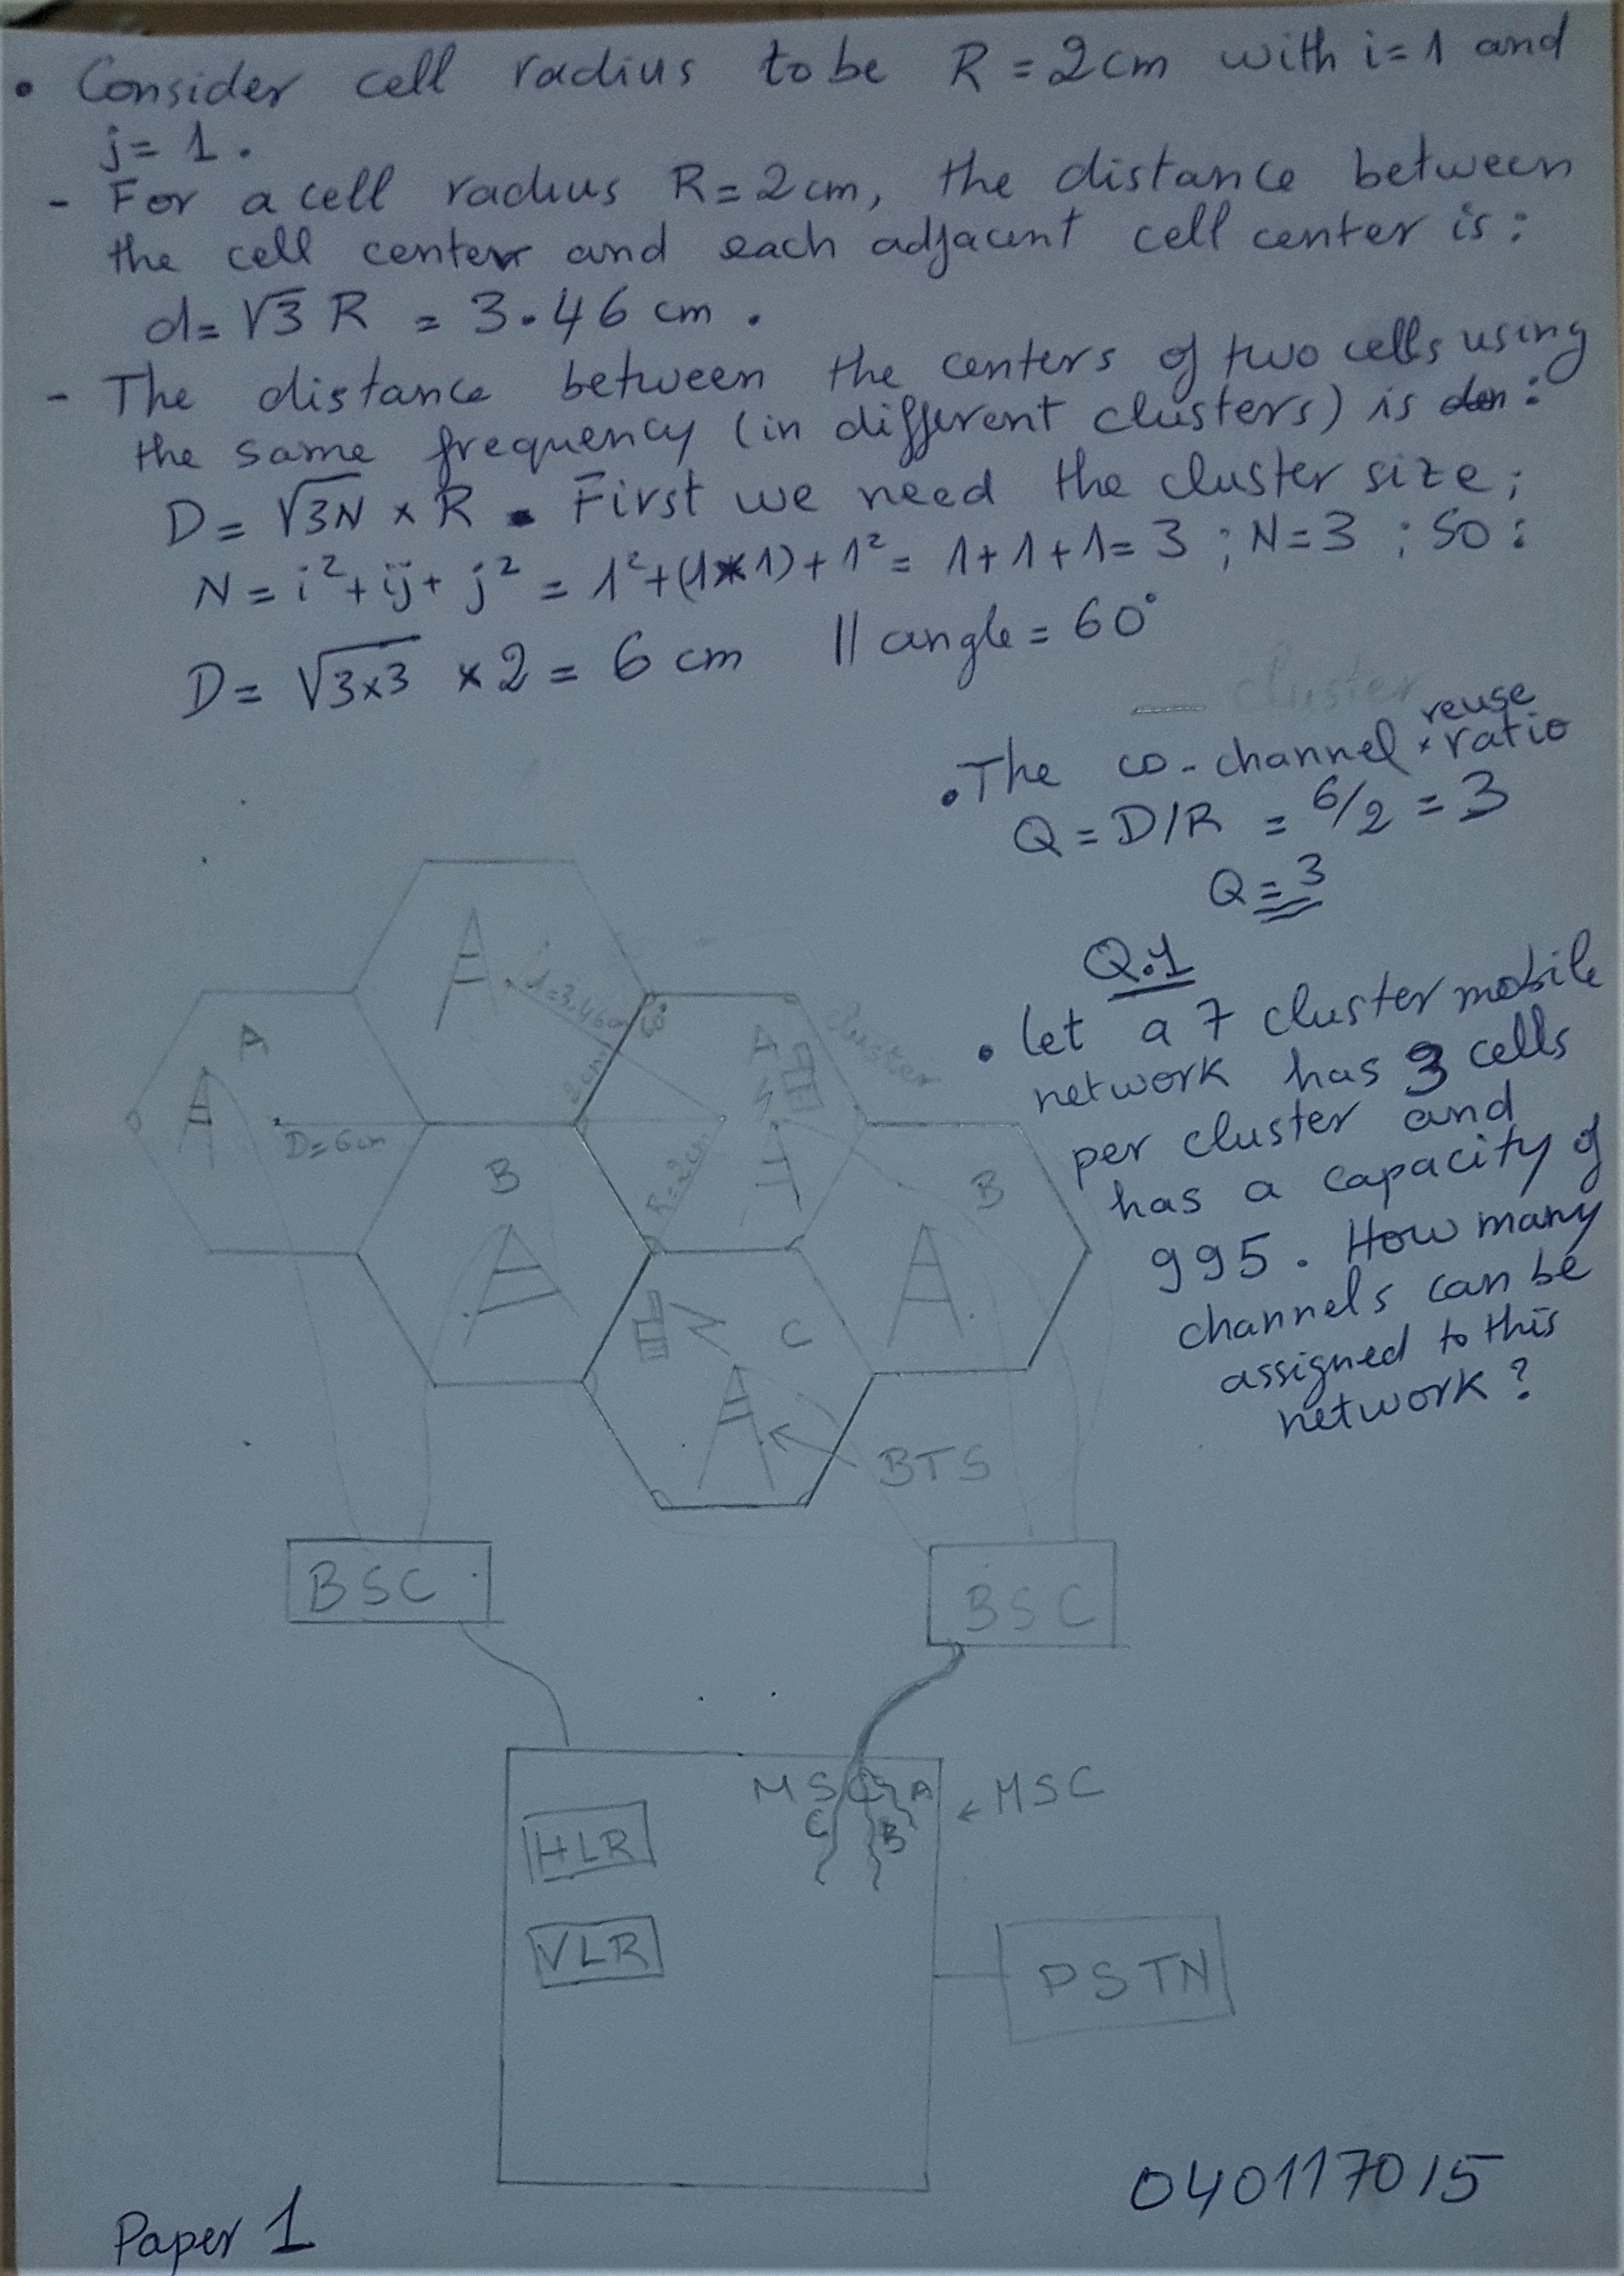 • Consider cell radius to be R = 2cm with i=1 and
j= 1.
- For a cell radius R=2cm, the distance between
the cell center and each adjacent cell center is:
d= √3 R = 3.46 cm.
- The distance between the centers of two cells using
the same frequency (in different clusters) is :
D= √3N × R. First we need the cluster size;
N = i²+ ij+ j² = 1²+(1*1)+1² = 1+1+1= 3 ; N=3 ; So:
D= √3×3 × 2 = 6 cm || angle = 60°
cluster
reuse
• The co-channel × ratio
Q = D/R = 6/2 = 3
Q = 3
Q.1
• let a 7 cluster mobile
network has 3 cells
per cluster and
has a capacity of
995. How many
channels can be
assigned to this
network?
A
A
cluster
2cm
D=6cm
R=2cm
B
B
C
BTS
BSC
BSC
MSC A
C B
← MSC
HLR
VLR
PSTN
040117015
Paper 1